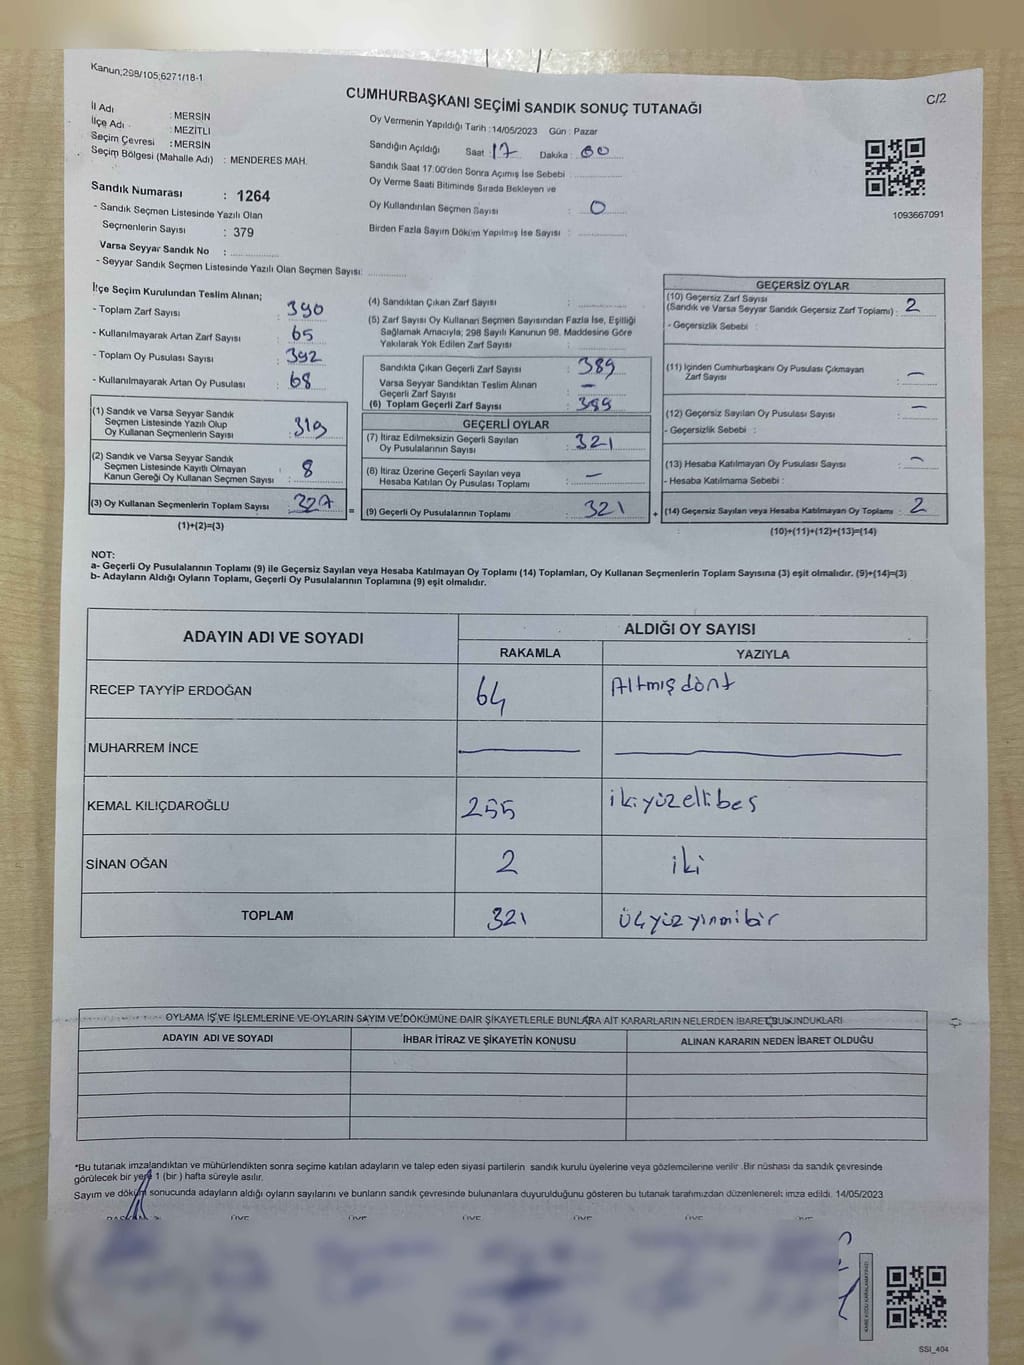 Kanun;298/105;6271/18-1
C/2
CUMHURBAŞKANI SEÇİMİ SANDIK SONUÇ TUTANAĞI
İl Adı : MERSİN
İlçe Adı : MEZİTLİ
Seçim Çevresi : MERSİN
Seçim Bölgesi (Mahalle Adı) : MENDERES MAH.
Sandık Numarası : 1264
- Sandık Seçmen Listesinde Yazılı Olan
Seçmenlerin Sayısı : 379
Varsa Seyyar Sandık No :
- Seyyar Sandık Seçmen Listesinde Yazılı Olan Seçmen Sayısı:
Oy Vermenin Yapıldığı Tarih :14/05/2023 Gün : Pazar
Sandığın Açıldığı Saat : 17 Dakika : 00
Sandık Saat 17:00'den Sonra Açımış İse Sebebi :
Oy Verme Saati Bitiminde Sırada Bekleyen ve
Oy Kullandırılan Seçmen Sayısı : 0
Birden Fazla Sayım Döküm Yapılmış İse Sayısı :
1093667091
İlçe Seçim Kurulundan Teslim Alınan;
- Toplam Zarf Sayısı : 390
- Kullanılmayarak Artan Zarf Sayısı : 65
- Toplam Oy Pusulası Sayısı : 392
- Kullanılmayarak Artan Oy Pusulası : 68
(1) Sandık ve Varsa Seyyar Sandık
Seçmen Listesinde Yazılı Olup
Oy Kullanan Seçmenlerin Sayısı : 319
(2) Sandık ve Varsa Seyyar Sandık
Seçmen Listesinde Kayıtlı Olmayan
Kanun Gereği Oy Kullanan Seçmen Sayısı : 8
(3) Oy Kullanan Seçmenlerin Toplam Sayısı : 327
(1)+(2)=(3)
(4) Sandıktan Çıkan Zarf Sayısı :
(5) Zarf Sayısı Oy Kullanan Seçmen Sayısından Fazla İse, Eşitliği
Sağlamak Amacıyla; 298 Sayılı Kanunun 98. Maddesine Göre
Yakılarak Yok Edilen Zarf Sayısı :
Sandıkta Çıkan Geçerli Zarf Sayısı : 389
Varsa Seyyar Sandıktan Teslim Alınan
Geçerli Zarf Sayısı : —
(6) Toplam Geçerli Zarf Sayısı : 389
GEÇERLİ OYLAR
(7) İtiraz Edilmeksizin Geçerli Sayılan
Oy Pusulalarının Sayısı : 321
(8) İtiraz Üzerine Geçerli Sayılan veya
Hesaba Katılan Oy Pusulası Toplamı : —
= (9) Geçerli Oy Pusulalarının Toplamı : 321 +
GEÇERSİZ OYLAR
(10) Geçersiz Zarf Sayısı
(Sandık ve Varsa Seyyar Sandık Geçersiz Zarf Toplamı) : 2
- Geçersizlik Sebebi :
(11) İçinden Cumhurbaşkanı Oy Pusulası Çıkmayan
Zarf Sayısı : —
(12) Geçersiz Sayılan Oy Pusulası Sayısı : —
- Geçersizlik Sebebi :
(13) Hesaba Katılmayan Oy Pusulası Sayısı : —
- Hesaba Katılmama Sebebi :
(14) Geçersiz Sayılan veya Hesaba Katılmayan Oy Toplamı : 2
(10)+(11)+(12)+(13)=(14)
NOT:
a- Geçerli Oy Pusulalarının Toplamı (9) ile Geçersiz Sayılan veya Hesaba Katılmayan Oy Toplamı (14) Toplamları, Oy Kullanan Seçmenlerin Toplam Sayısına (3) eşit olmalıdır. (9)+(14)=(3)
b- Adayların Aldığı Oyların Toplamı, Geçerli Oy Pusulalarının Toplamına (9) eşit olmalıdır.
ADAYIN ADI VE SOYADI ALDIĞI OY SAYISI
RAKAMLA YAZIYLA
RECEP TAYYİP ERDOĞAN 64 Altmışdört
MUHARREM İNCE — —
KEMAL KILIÇDAROĞLU 255 ikiyüzellibeş
SİNAN OĞAN 2 iki
TOPLAM 321 üçyüzyirmibir
OYLAMA İŞ VE İŞLEMLERİNE VE OYLARIN SAYIM VE DÖKÜMÜNE DAİR ŞİKAYETLERLE BUNLARA AİT KARARLARIN NELERDEN İBARET BULUNDUKLARI
ADAYIN ADI VE SOYADI İHBAR İTİRAZ VE ŞİKAYETİN KONUSU ALINAN KARARIN NEDEN İBARET OLDUĞU
*Bu tutanak imzalandıktan ve mühürlendikten sonra seçime katılan adayların ve talep eden siyasi partilerin sandık kurulu üyelerine veya gözlemcilerine verilir .Bir nüshası da sandık çevresinde
görülecek bir yere 1 (bir ) hafta süreyle asılır.
Sayım ve döküm sonucunda adayların aldığı oyların sayılarını ve bunların sandık çevresinde bulunanlara duyurulduğunu gösteren bu tutanak tarafımızdan düzenlenerek imza edildi. 14/05/2023
BAŞKAN ÜYE ÜYE ÜYE ÜYE ÜYE ÜYE
SSI_404